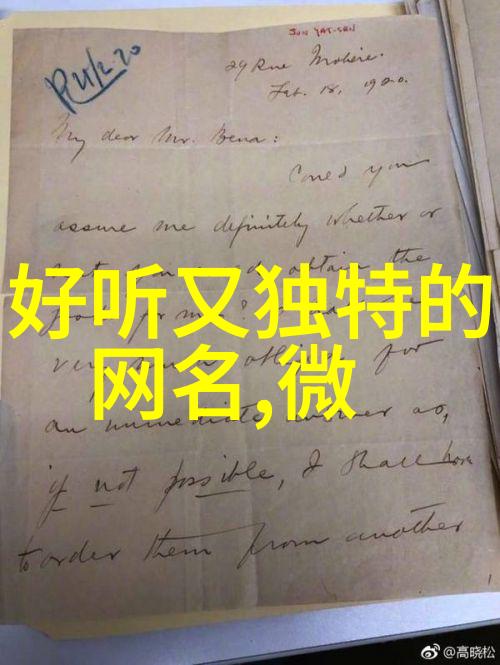 SUN YAT-SEN
R 21/2.20
29 Rue Molière.
Feb. 18, 1920.
My dear Mr. Bena:
Could you
assure me definitely whether or
not obtain the
好听又独特的
for me?
very for
网名,微
an immediate answer as,
if not possible, I shall have
to order them from another
@高晓松